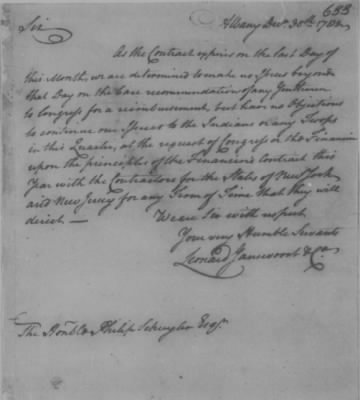 633
Sir
Albany Decr. 30th. 1782
As the Contract expires on the last Day of
this Month, we are determined to make no Issues beyond
that Day on the bare recommendation of any Gentlemen
to Congress for a reimbursement, but have no Objections
to continue our Issues to the Indians or any Troops
in this Quarter, at the request of Congress or the Financier
upon the principles of the Financiers Contract this
Year with the Contractors for the State of New York
and New Jersey for any Term of Time that they will
direct —
We are Sir with respect
Your very Humble Servants
Leonard Gansevoort & Co.
The Honble. Philip Schuyler Esqr.